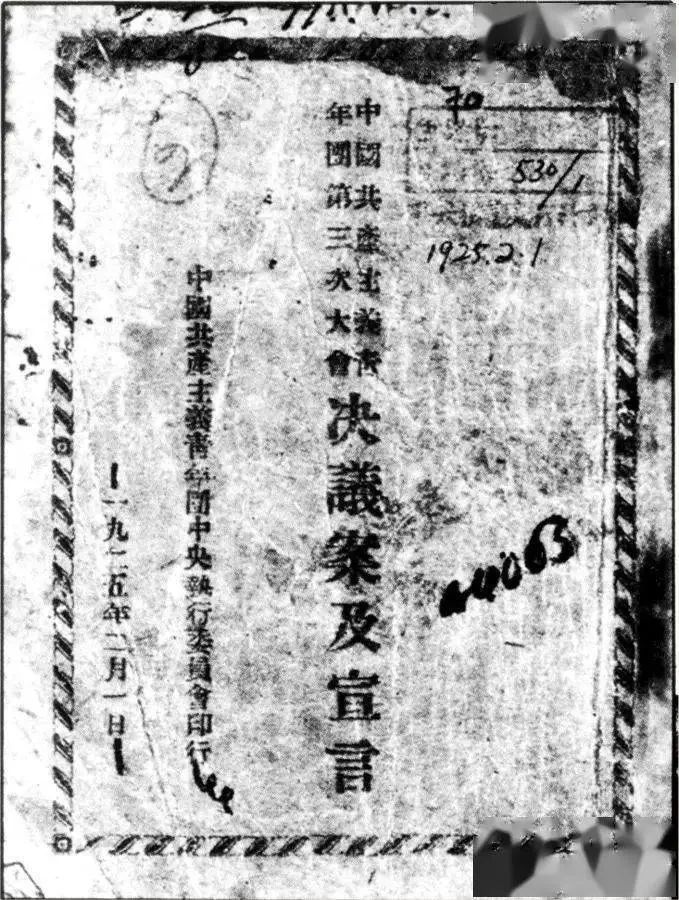 70
530/1
1925.2.1
中國共產主義青
年團第三次大會
決議案及宣言
中國共產主義青年團中央執行委員會印行
一九二五年二月一日